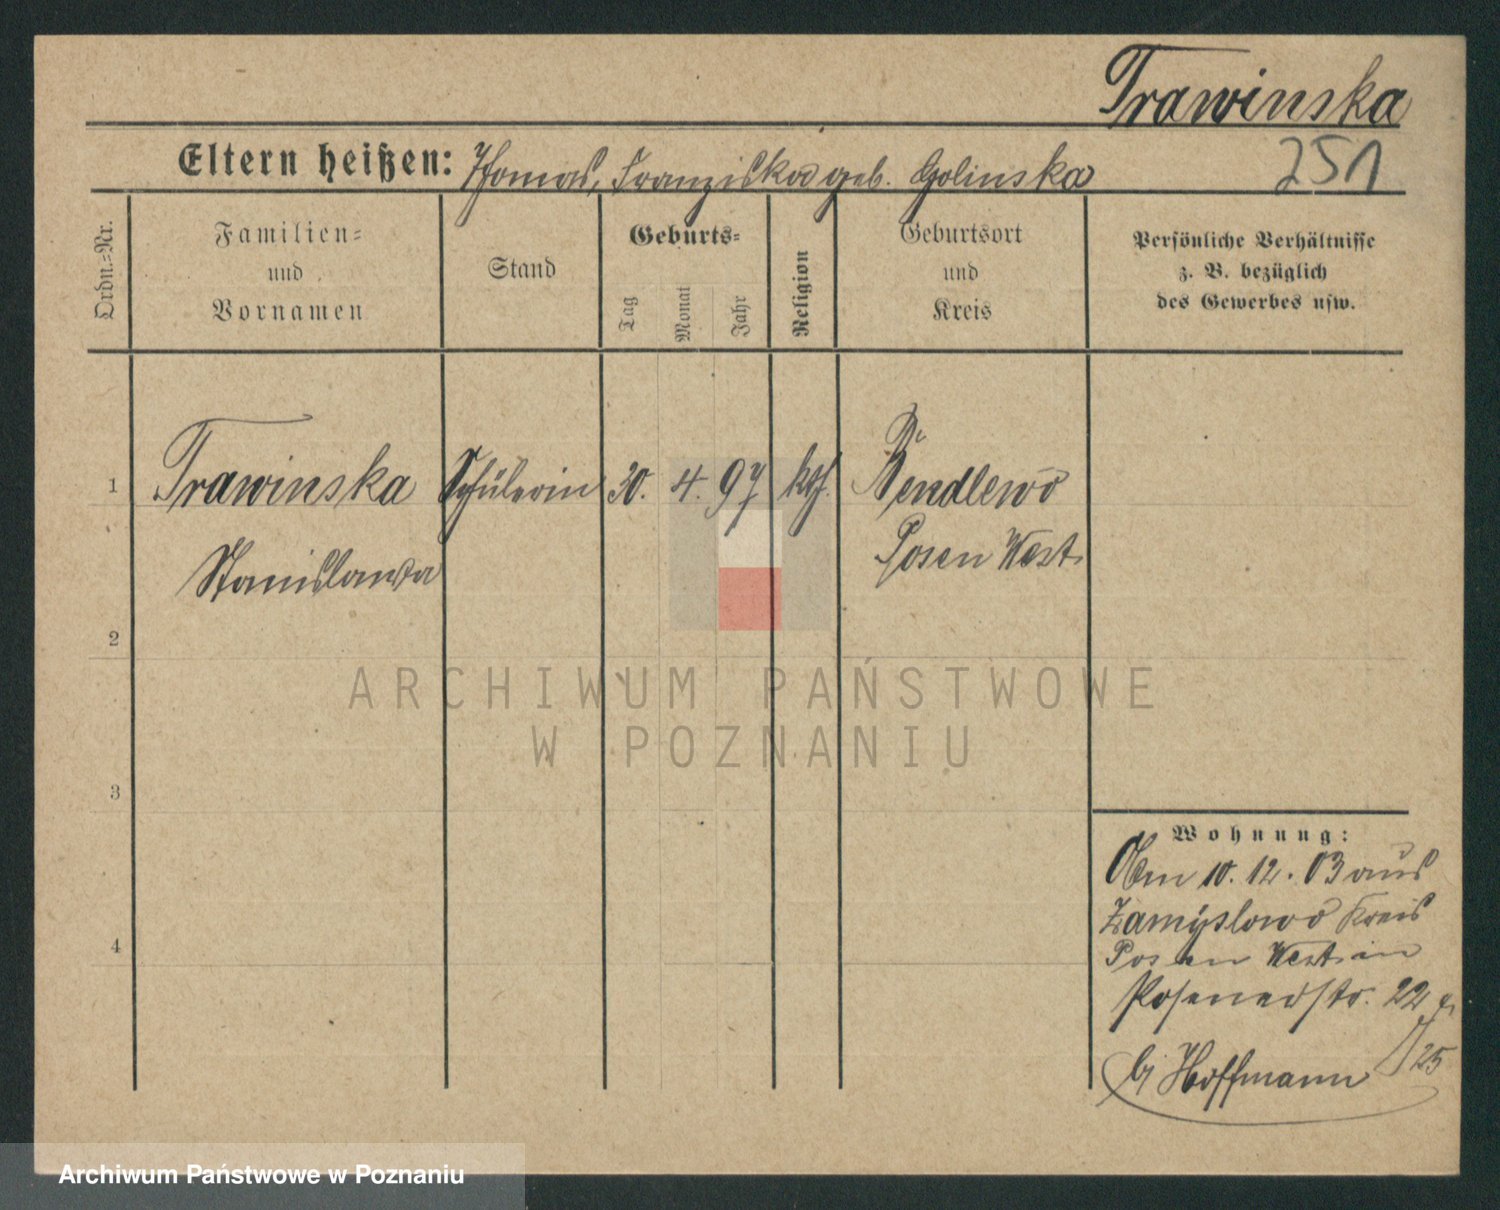 Trawinska
251
Eltern heißen: Thomas, Franziska geb. Golinska
Ordn.-Nr.
Familien-
und
Vornamen
Stand
Geburts-
Tag
Monat
Jahr
Religion
Geburtsort
und
Kreis
Persönliche Verhältnisse
z. B. bezüglich
des Gewerbes usw.
1
Trawinska Schülerin 30. 4. 97 kth. Rendlewo
Stanislawa
Posen West.
2
ARCHIWUM PAŃSTWOWE
W POZNANIU
3
4
Wohnung:
Am 10. 12. 03 aus
Zamyslowo Kreis
Posen West in
Posenerstr. 22
bei Hoffmann
25
Archiwum Państwowe w Poznaniu